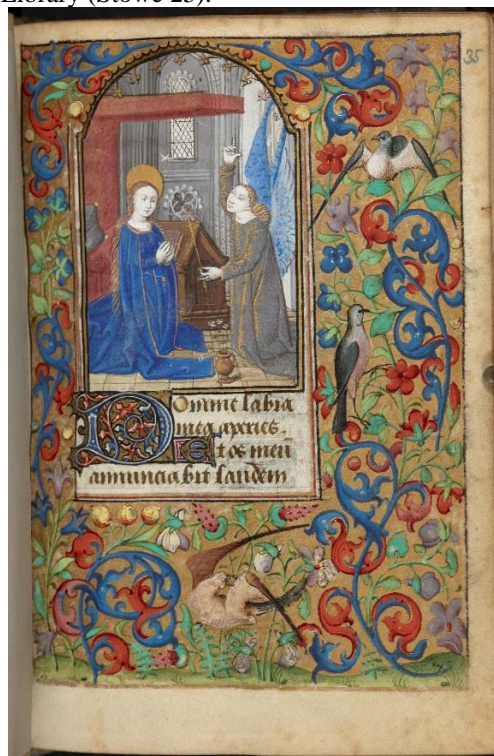 Library (Stowe 25).
35
Domine labia
mea aperies.
Et os meū
annunciabit laudem